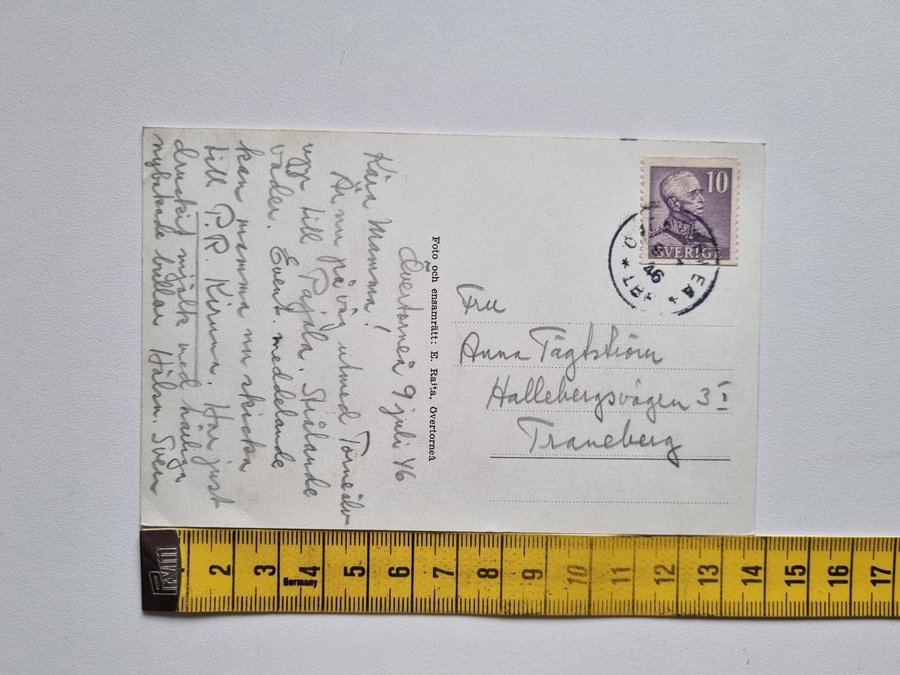 Övertorneå 9 juli 46
Kära Mamma!
Är nu på väg utmed Torneälv
upp till Pajala. Strålande
väder. Event. meddelande
kan mamma nu skicka
till P.R. Kiruna. Har just
druckit mjölk med härliga
nybakade bullar Hälsn. Sven
Foto och ensamrätt: E. Raitta, Övertorneå
10
SVERIGE
46
LBR
Fru
Anna Tägtström
Hallebergsvägen 3 I
Traneberg
2 3 4 5 6 7 8 9 10 11 12 13 14 15 16 17
Germany